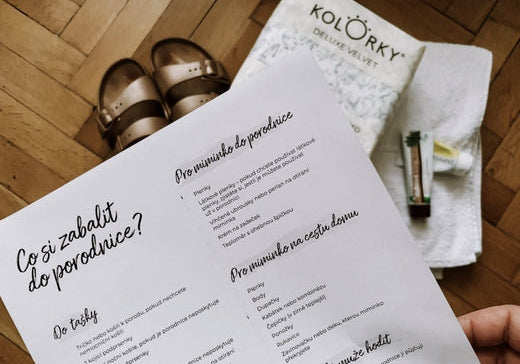 KOLORKY
DELUXE VELVET
Co si zabalit
do porodnice?
Do tašky
Tričko nebo košili k porodu, pokud nechcete
nemocniční košili
2 kojicí podprsenky
košile, pokud je porodnice neposkytuje
Pro miminko do porodnice
Plenky
Látkové plenky - pokud chcete používat látkové
plenky, zjistěte si, jestli je můžete používat
už v porodnici
Vlhčené ubrousky nebo perlan na otírání
miminka
Krém na zadeček
Teploměr s ohebnou špičkou
Pro miminko na cestu domu
Plenky
Body
Dupačky
Kabátek nebo kombinézu
Čepičky (v zimě teplejší)
Ponožky
rukavice
Zavinovačku nebo deku, kterou miminko
může hodit